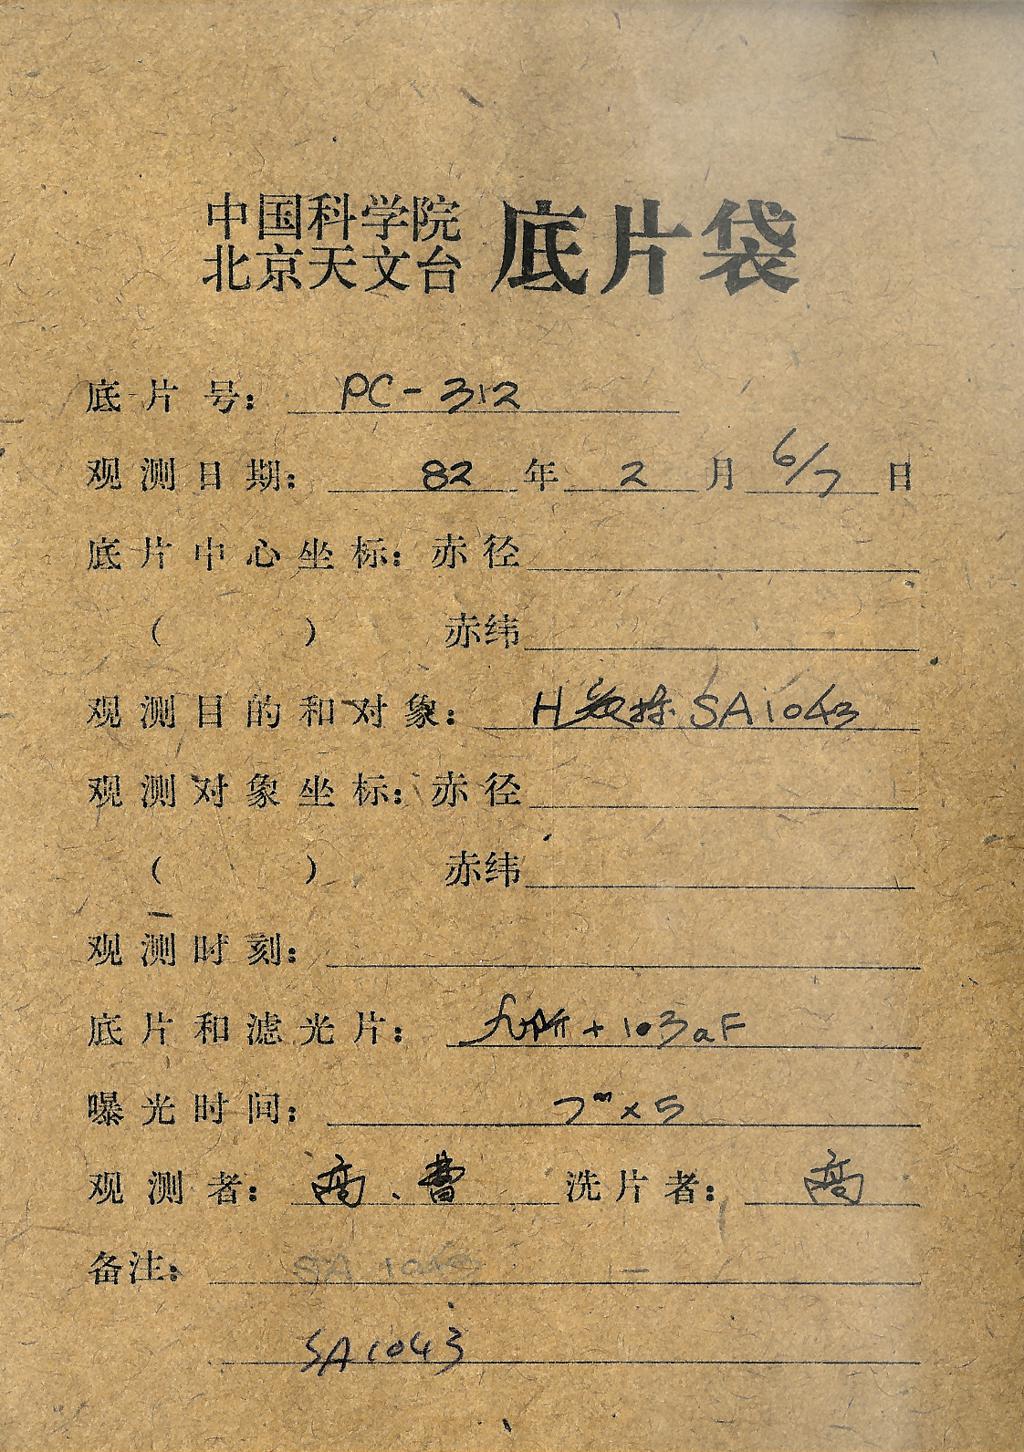 中国科学院
北京天文台 底片袋
底片号: PC-312
观测日期: 82年2月6/7日
底片中心坐标: 赤径
( ) 赤纬
观测目的和对象: H SA1043
观测对象坐标: 赤径
( ) 赤纬
观测时刻:
底片和滤光片: + 103aF
曝光时间: 7ᵐ×5
观测者: 高、曹 洗片者: 高
备注:
SA1043